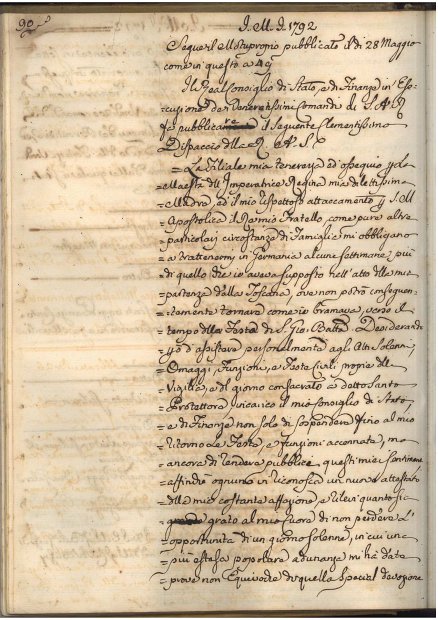 90
I. M. I. 1792
Segue il Motuproprio pubblicato il dì 28 Maggio
come in questo a 49
Il Real Consiglio di Stato, e di Finanze in Ese-
cuzione dei Veneratissimi Comandi di S. A. R.
fa pubblicare il seguente Clementissimo
Dispaccio della R. A. S.
= La Filiale mia tenerezza ed ossequio p. la
= Maestà dell' Imperatrice Regina mia dilettissima
= Madre, ed il mio rispettoso attaccamento p. S. M.
= Apostolica il Re mio Fratello, come pure altre
= particolari circostanze di Famiglia mi obbligano
= a trattenermi in Germania alcune settimane più
= di quello che io aveva supposto nell' atto della mia
= partenza dalla Toscana, ove non potrò conseguen-
= temente tornare come io bramava, verso il
= tempo della Festa di S. Gio. Batta. Desiderando
= p. io d'assistere personalmente agli Atti Solenni,
= Omaggi, Funzioni, e Feste Civili, proprie della
= Vigilia, e del giorno consacrato a detto Santo
= Protettore, incarico il mio Consiglio di Stato,
= e di Finanze non solo di sospendere fino al mio
= ritorno le Feste, e funzioni accennate, ma
= ancora di rendere pubblici questi miei sentimenti
= affinchè ognuno vi riconosca un nuovo attestato
= della mia costante affezione, e rilevi quanto sia
= grato al mio cuore di non perdere l'
= opportunità di un giorno solenne, in cui una
= più estesa popolare adunanza mi ha date
= prove non Equivoche di quella Special devozione